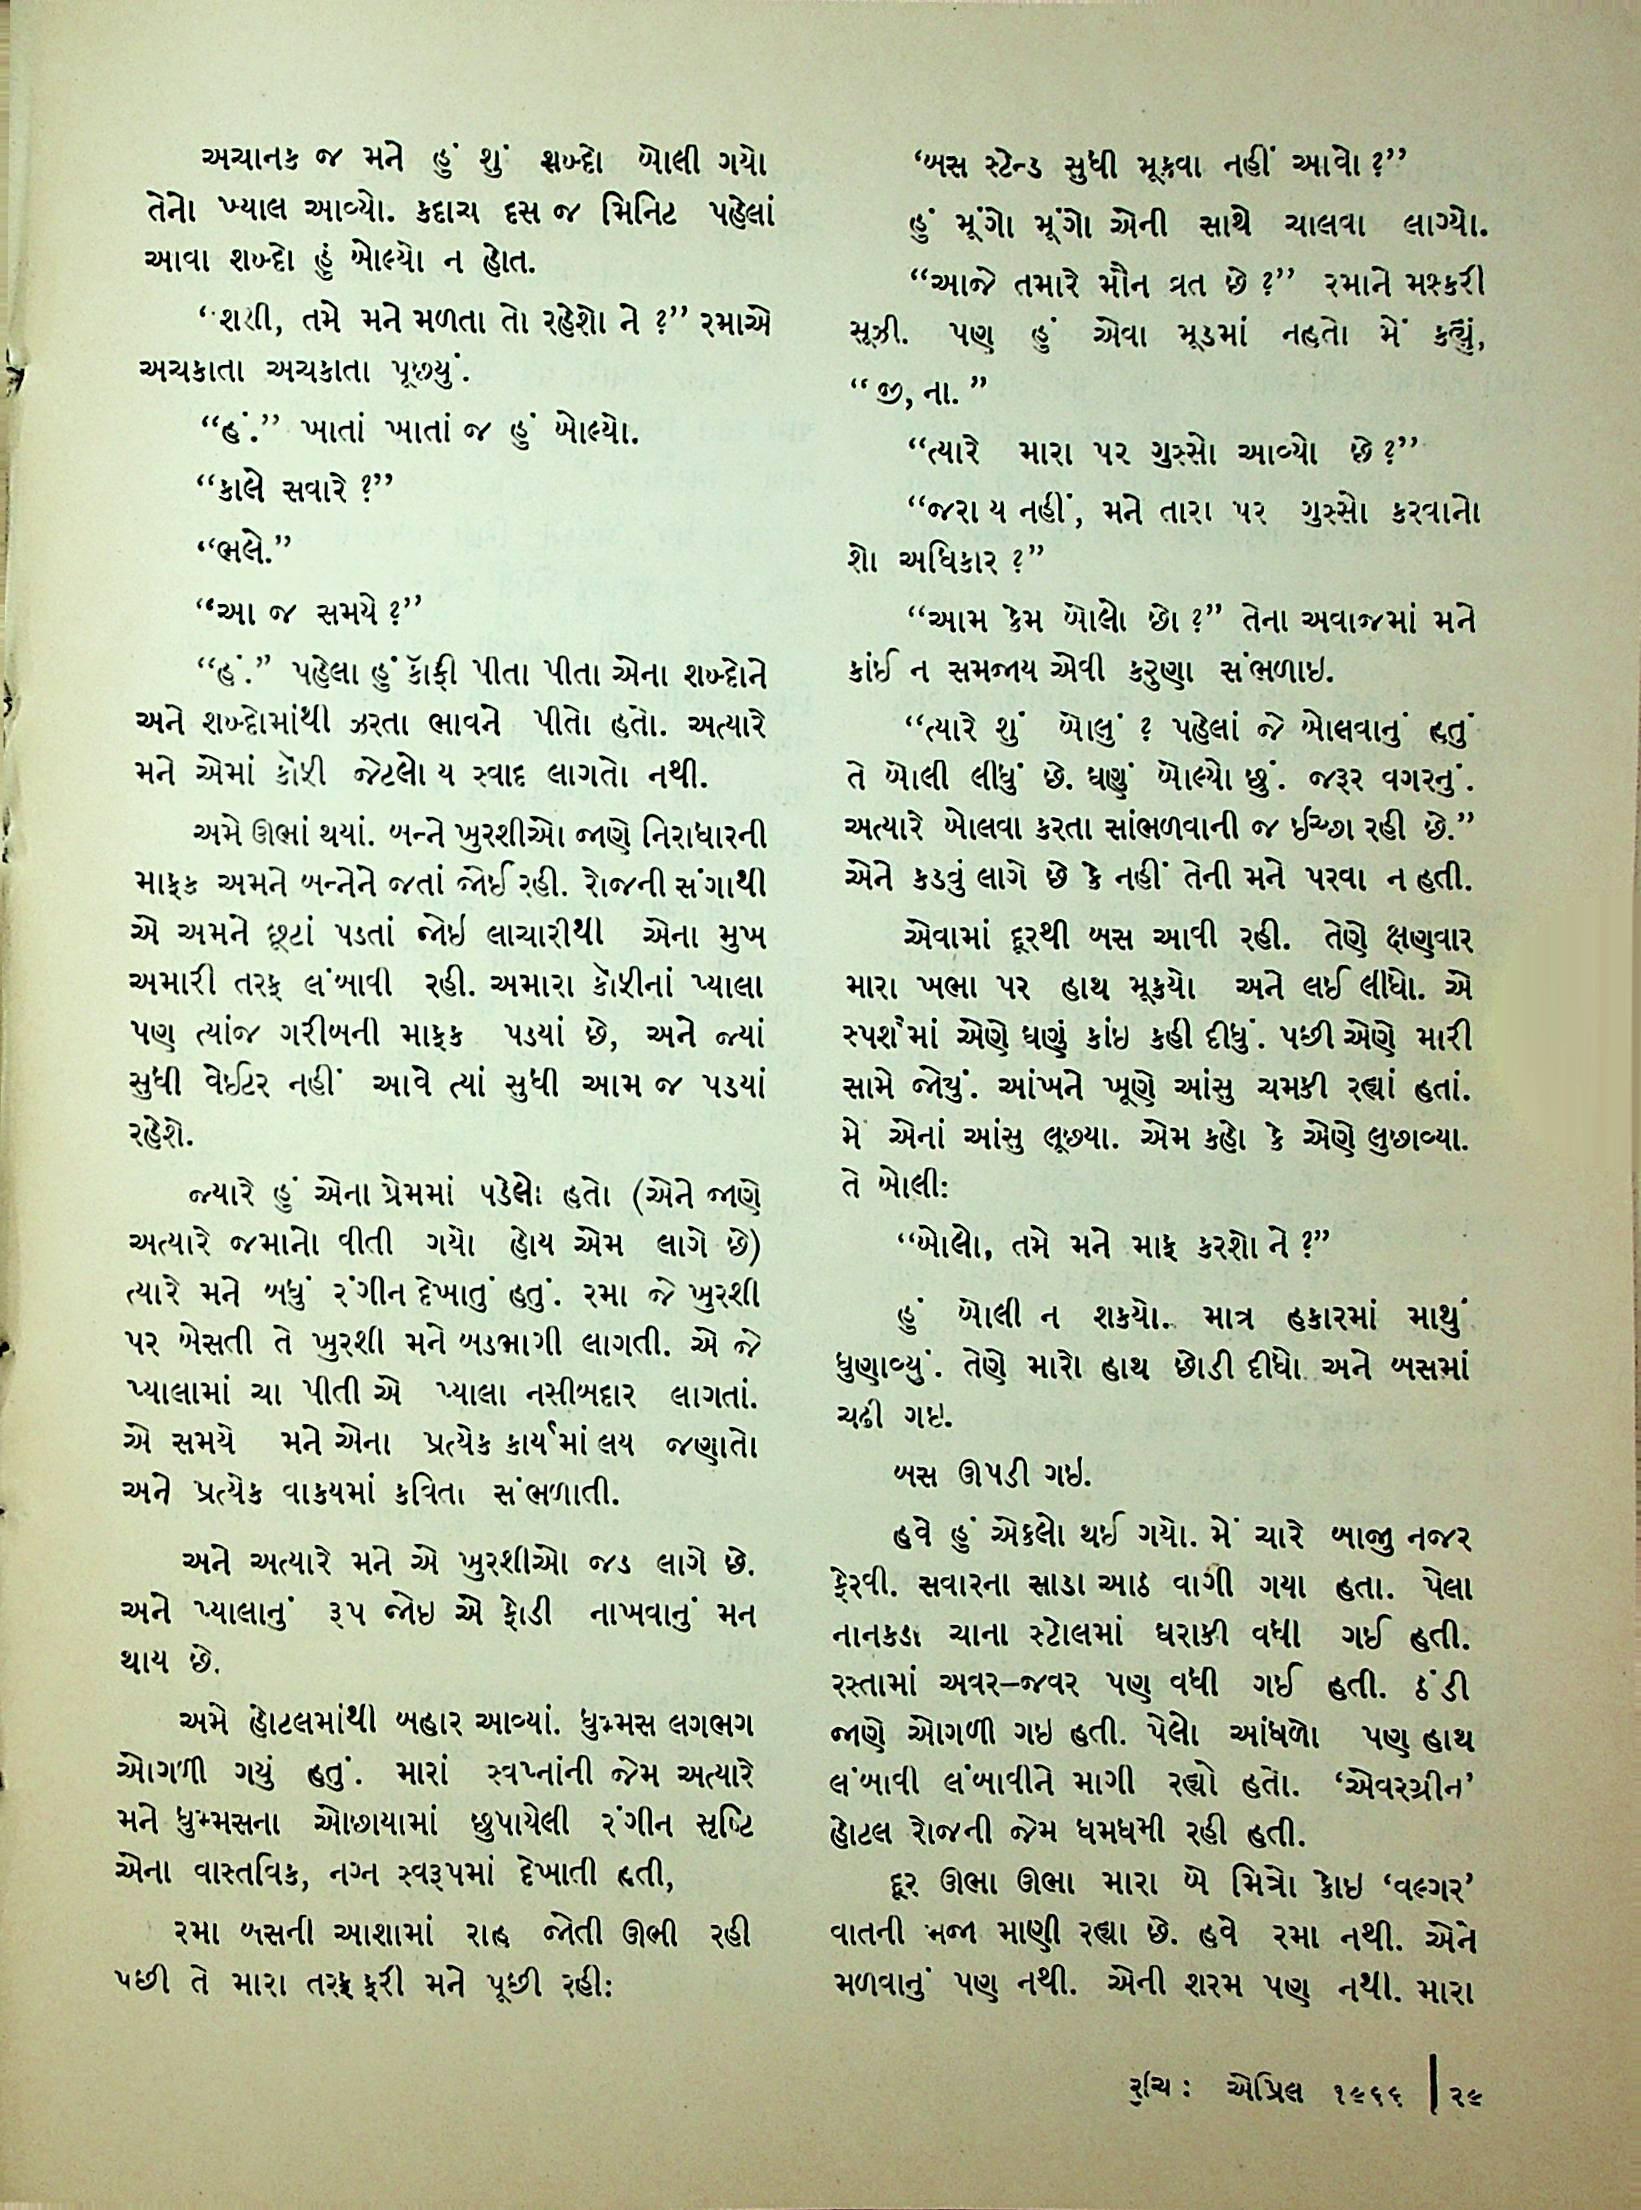 અચાનક જ મને હું શું શબ્દો બોલી ગયો
તેનો ખ્યાલ આવ્યો. કદાચ દસ જ મિનિટ પહેલાં
આવા શબ્દો હું બોલ્યો ન હોત.
“શશી, તમે મને મળતા તો રહેશો ને ?” રમાએ
અચકાતા અચકાતા પૂછયું.
“હં.” ખાતાં ખાતાં જ હું બોલ્યો.
“કાલે સવારે ?”
“ભલે.”
“આ જ સમયે ?”
“હં.” પહેલા હું કૉફી પીતા પીતા એના શબ્દોને
અને શબ્દોમાંથી ઝરતા ભાવને પીતો હતો. અત્યારે
મને એમાં કૉફી જેટલો ય સ્વાદ લાગતો નથી.
અમે ઊભાં થયાં. બન્ને ખુરશીઓ જાણે નિરાધારની
માફક અમને બન્નેને જતાં જોઈ રહી. રોજની સંગાથી
એ અમને છૂટાં પડતાં જોઇ લાચારીથી એના મુખ
અમારી તરફ લંબાવી રહી. અમારા કૉફીનાં પ્યાલા
પણ ત્યાંજ ગરીબની માફક પડયાં છે, અને જ્યાં
સુધી વેઈટર નહીં આવે ત્યાં સુધી આમ જ પડયાં
રહેશે.
જ્યારે હું એના પ્રેમમાં પડેલો હતો (એને જાણે
અત્યારે જમાનો વીતી ગયો હોય એમ લાગે છે)
ત્યારે મને બધું રંગીન દેખાતું હતું. રમા જે ખુરશી
પર બેસતી તે ખુરશી મને બડભાગી લાગતી. એ જે
પ્યાલામાં ચા પીતી એ પ્યાલા નસીબદાર લાગતાં.
એ સમયે મને એના પ્રત્યેક કાર્યમાં લય જણાતો
અને પ્રત્યેક વાકયમાં કવિતા સંભળાતી.
અને અત્યારે મને એ ખુરશીઓ જડ લાગે છે.
અને પ્યાલાનું રૂપ જોઇ એ ફોડી નાખવાનું મન
થાય છે.
અમે હોટલમાંથી બહાર આવ્યાં. ધુમ્મસ લગભગ
ઓગળી ગયું હતું. મારાં સ્વપ્નાંની જેમ અત્યારે
મને ધુમ્મસના ઓછાયામાં છુપાયેલી રંગીન સૃષ્ટિ
એના વાસ્તવિક, નગ્ન સ્વરૂપમાં દેખાતી હતી,
રમા બસની આશામાં રાહ જોતી ઊભી રહી
પછી તે મારા તરફ ફરી મને પૂછી રહી:
‘બસ સ્ટેન્ડ સુધી મૂકવા નહીં આવો ?”
હું મૂંગો મૂંગો એની સાથે ચાલવા લાગ્યો.
“આજે તમારે મૌન વ્રત છે ?” રમાને મશ્કરી
સૂઝી. પણ હું એવા મૂડમાં નહતો મેં કહ્યું,
“જી, ના.”
“ત્યારે મારા પર ગુસ્સો આવ્યો છે ?”
“જરા ય નહીં, મને તારા પર ગુસ્સો કરવાનો
શો અધિકાર ?”
“આમ કેમ બોલો છો ?” તેના અવાજમાં મને
કાંઈ ન સમજાય એવી કરુણા સંભળાઇ.
“ત્યારે શું બોલું ? પહેલાં જે બોલવાનું હતું
તે બોલી લીધું છે. ઘણું બોલ્યો છું. જરૂર વગરનું.
અત્યારે બોલવા કરતા સાંભળવાની જ ઈચ્છા રહી છે.”
એને કડવું લાગે છે કે નહીં તેની મને પરવા ન હતી.
એવામાં દૂરથી બસ આવી રહી. તેણે ક્ષણવાર
મારા ખભા પર હાથ મૂકયો અને લઈ લીધો. એ
સ્પર્શમાં એણે ઘણું કાંઇ કહી દીધું. પછી એણે મારી
સામે જોયું. આંખને ખૂણે આંસુ ચમકી રહ્યાં હતાં.
મેં એનાં આંસુ લૂછયા. એમ કહો કે એણે લુછાવ્યા.
તે બોલી:
“બોલો, તમે મને માફ કરશો ને ?”
હું બોલી ન શકયો. માત્ર હકારમાં માથું
ધુણાવ્યું. તેણે મારો હાથ છોડી દીધો અને બસમાં
ચઢી ગઇ.
બસ ઊપડી ગઇ.
હવે હું એકલો થઈ ગયો. મેં ચારે બાજુ નજર
ફેરવી. સવારના સાડા આઠ વાગી ગયા હતા. પેલા
નાનકડા ચાના સ્ટોલમાં ઘરાકી વધી ગઈ હતી.
રસ્તામાં અવર-જવર પણ વધી ગઈ હતી. ઠંડી
જાણે ઓગળી ગઇ હતી. પેલો આંધળો પણ હાથ
લંબાવી લંબાવીને માગી રહ્યો હતો. ‘એવરગ્રીન’
હોટલ રોજની જેમ ધમધમી રહી હતી.
દૂર ઊભા ઊભા મારા બે મિત્રો કોઇ ‘વલ્ગર’
વાતની મજા માણી રહ્યા છે. હવે રમા નથી. એને
મળવાનું પણ નથી. એની શરમ પણ નથી. મારા
રુચિ : એપ્રિલ ૧૯૬૬ | ૨૯